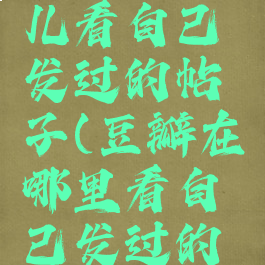 儿看自己
发过的帖
子(豆瓣在
哪里看自
己发过的